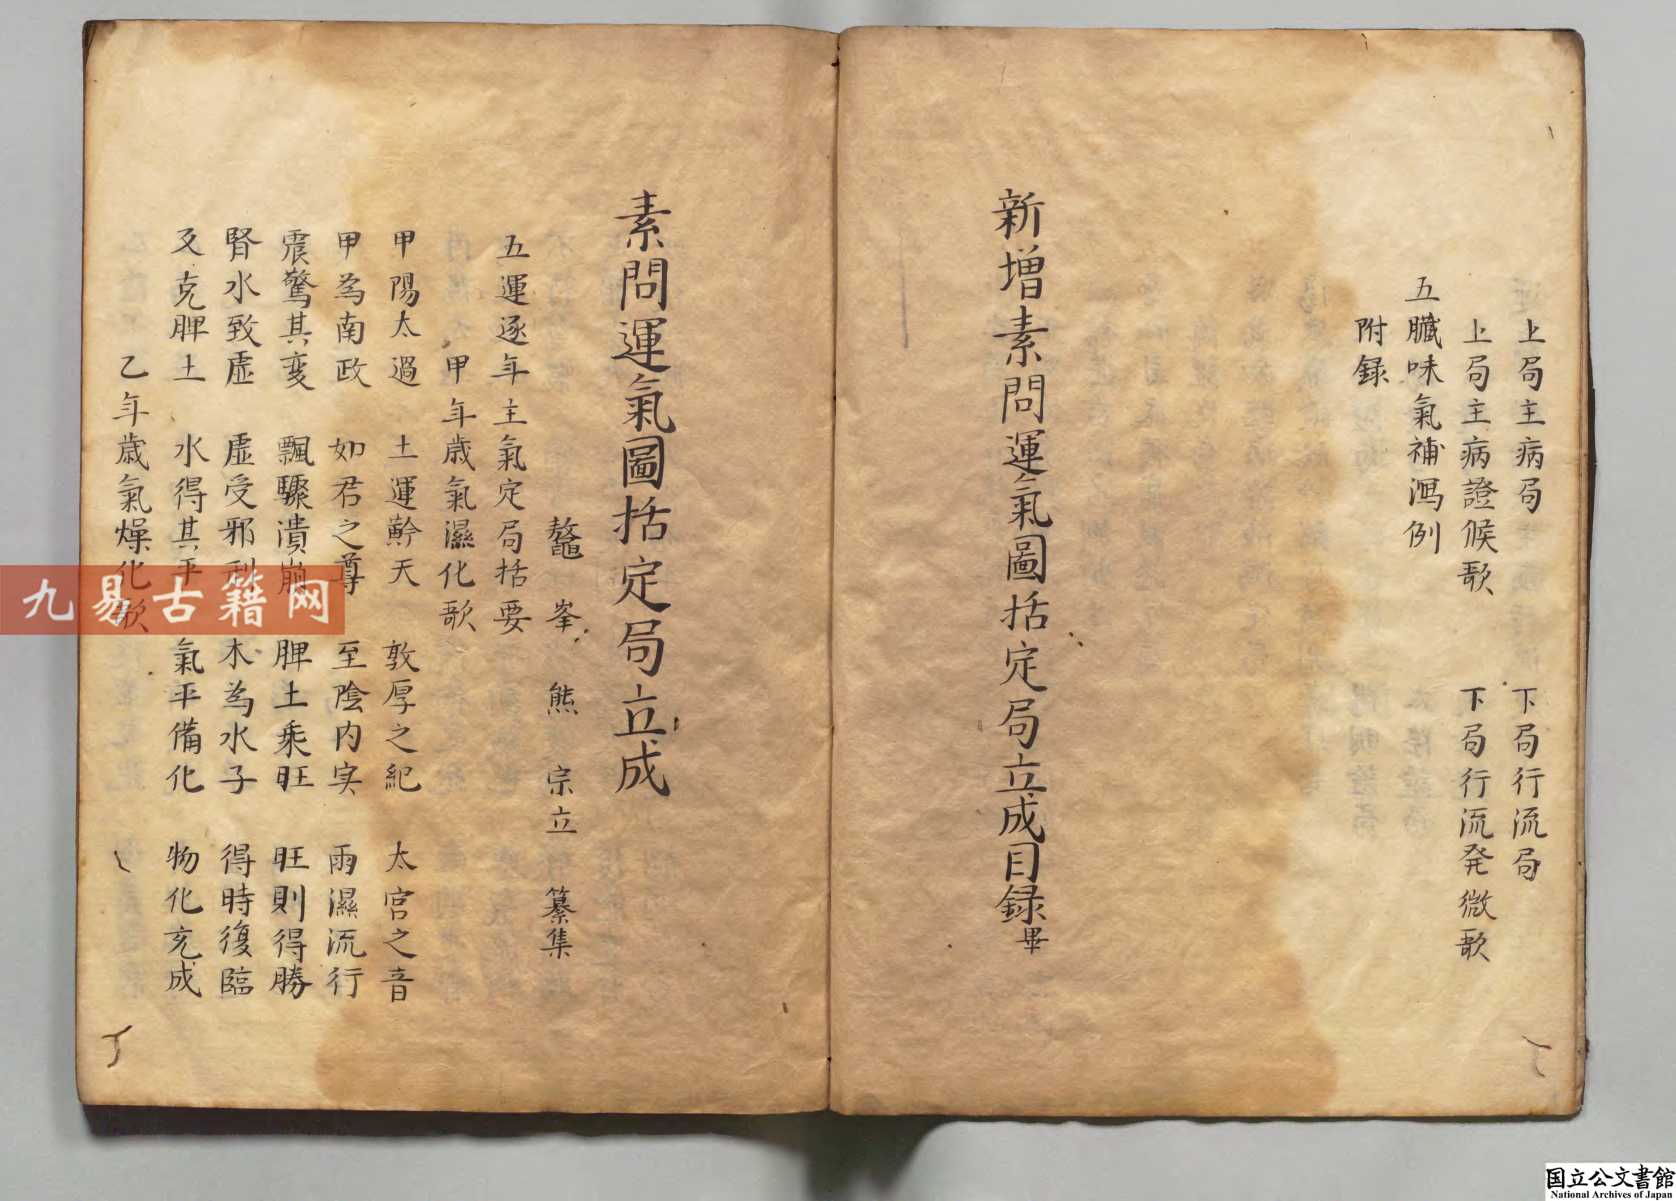 上局主病局　下局行流局
上局主病證候歌　下局行流発微歌
五臓味氣補瀉例
附録
新增素問運氣圖括定局立成目録畢
素問運氣圖括定局立成
鼇峯　熊　宗立　纂集
五運逐年主氣定局括要
甲年歳氣濕化歌
甲陽太過　土運黅天　敦厚之紀　太宮之音
甲為南政　如君之尊　至陰内实　雨濕流行
震驚其変　飄驟潰崩　脾土乘旺　旺則得勝
腎水致虚　虚受邪刑　木為水子　得時復臨
反克脾土　水得其平　氣平備化　物化充成
乙年歳氣燥化歌
九易古籍网
国立公文書館
National Archives of Japan